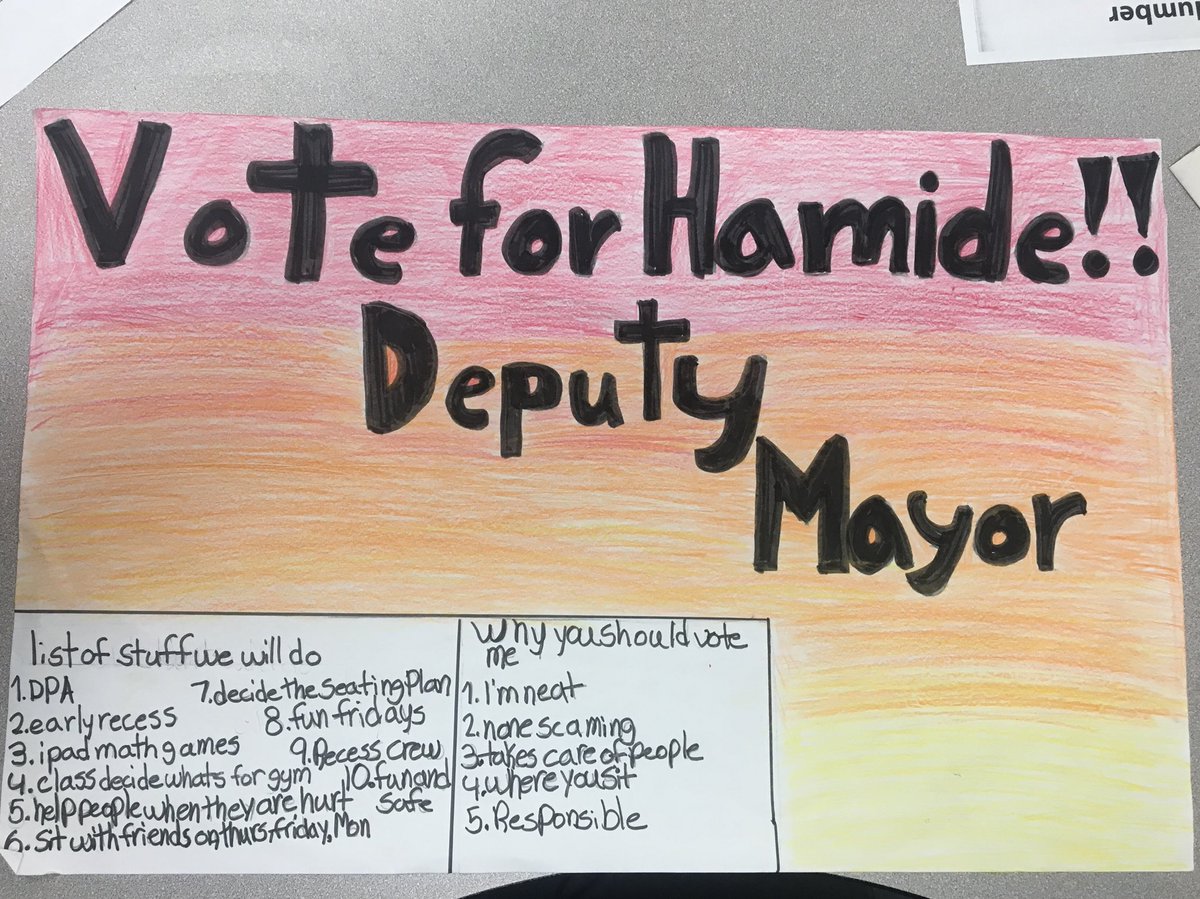 umber
Vote for Hamide!!
Deputy
Mayor
list of stuff we will do
1. DPA
2. early recess
3. ipad math games
4. class decide whats for gym
5. help people when they are hurt
6. Sit with friends on thurs, friday, Mon
7. decide the Seating Plan
8. fun fridays
9. Recess crew
10. fun and
safe
Why you should vote
me
1. I'm neat
2. none scaming
3. takes care of people
4. where you sit
5. Responsible